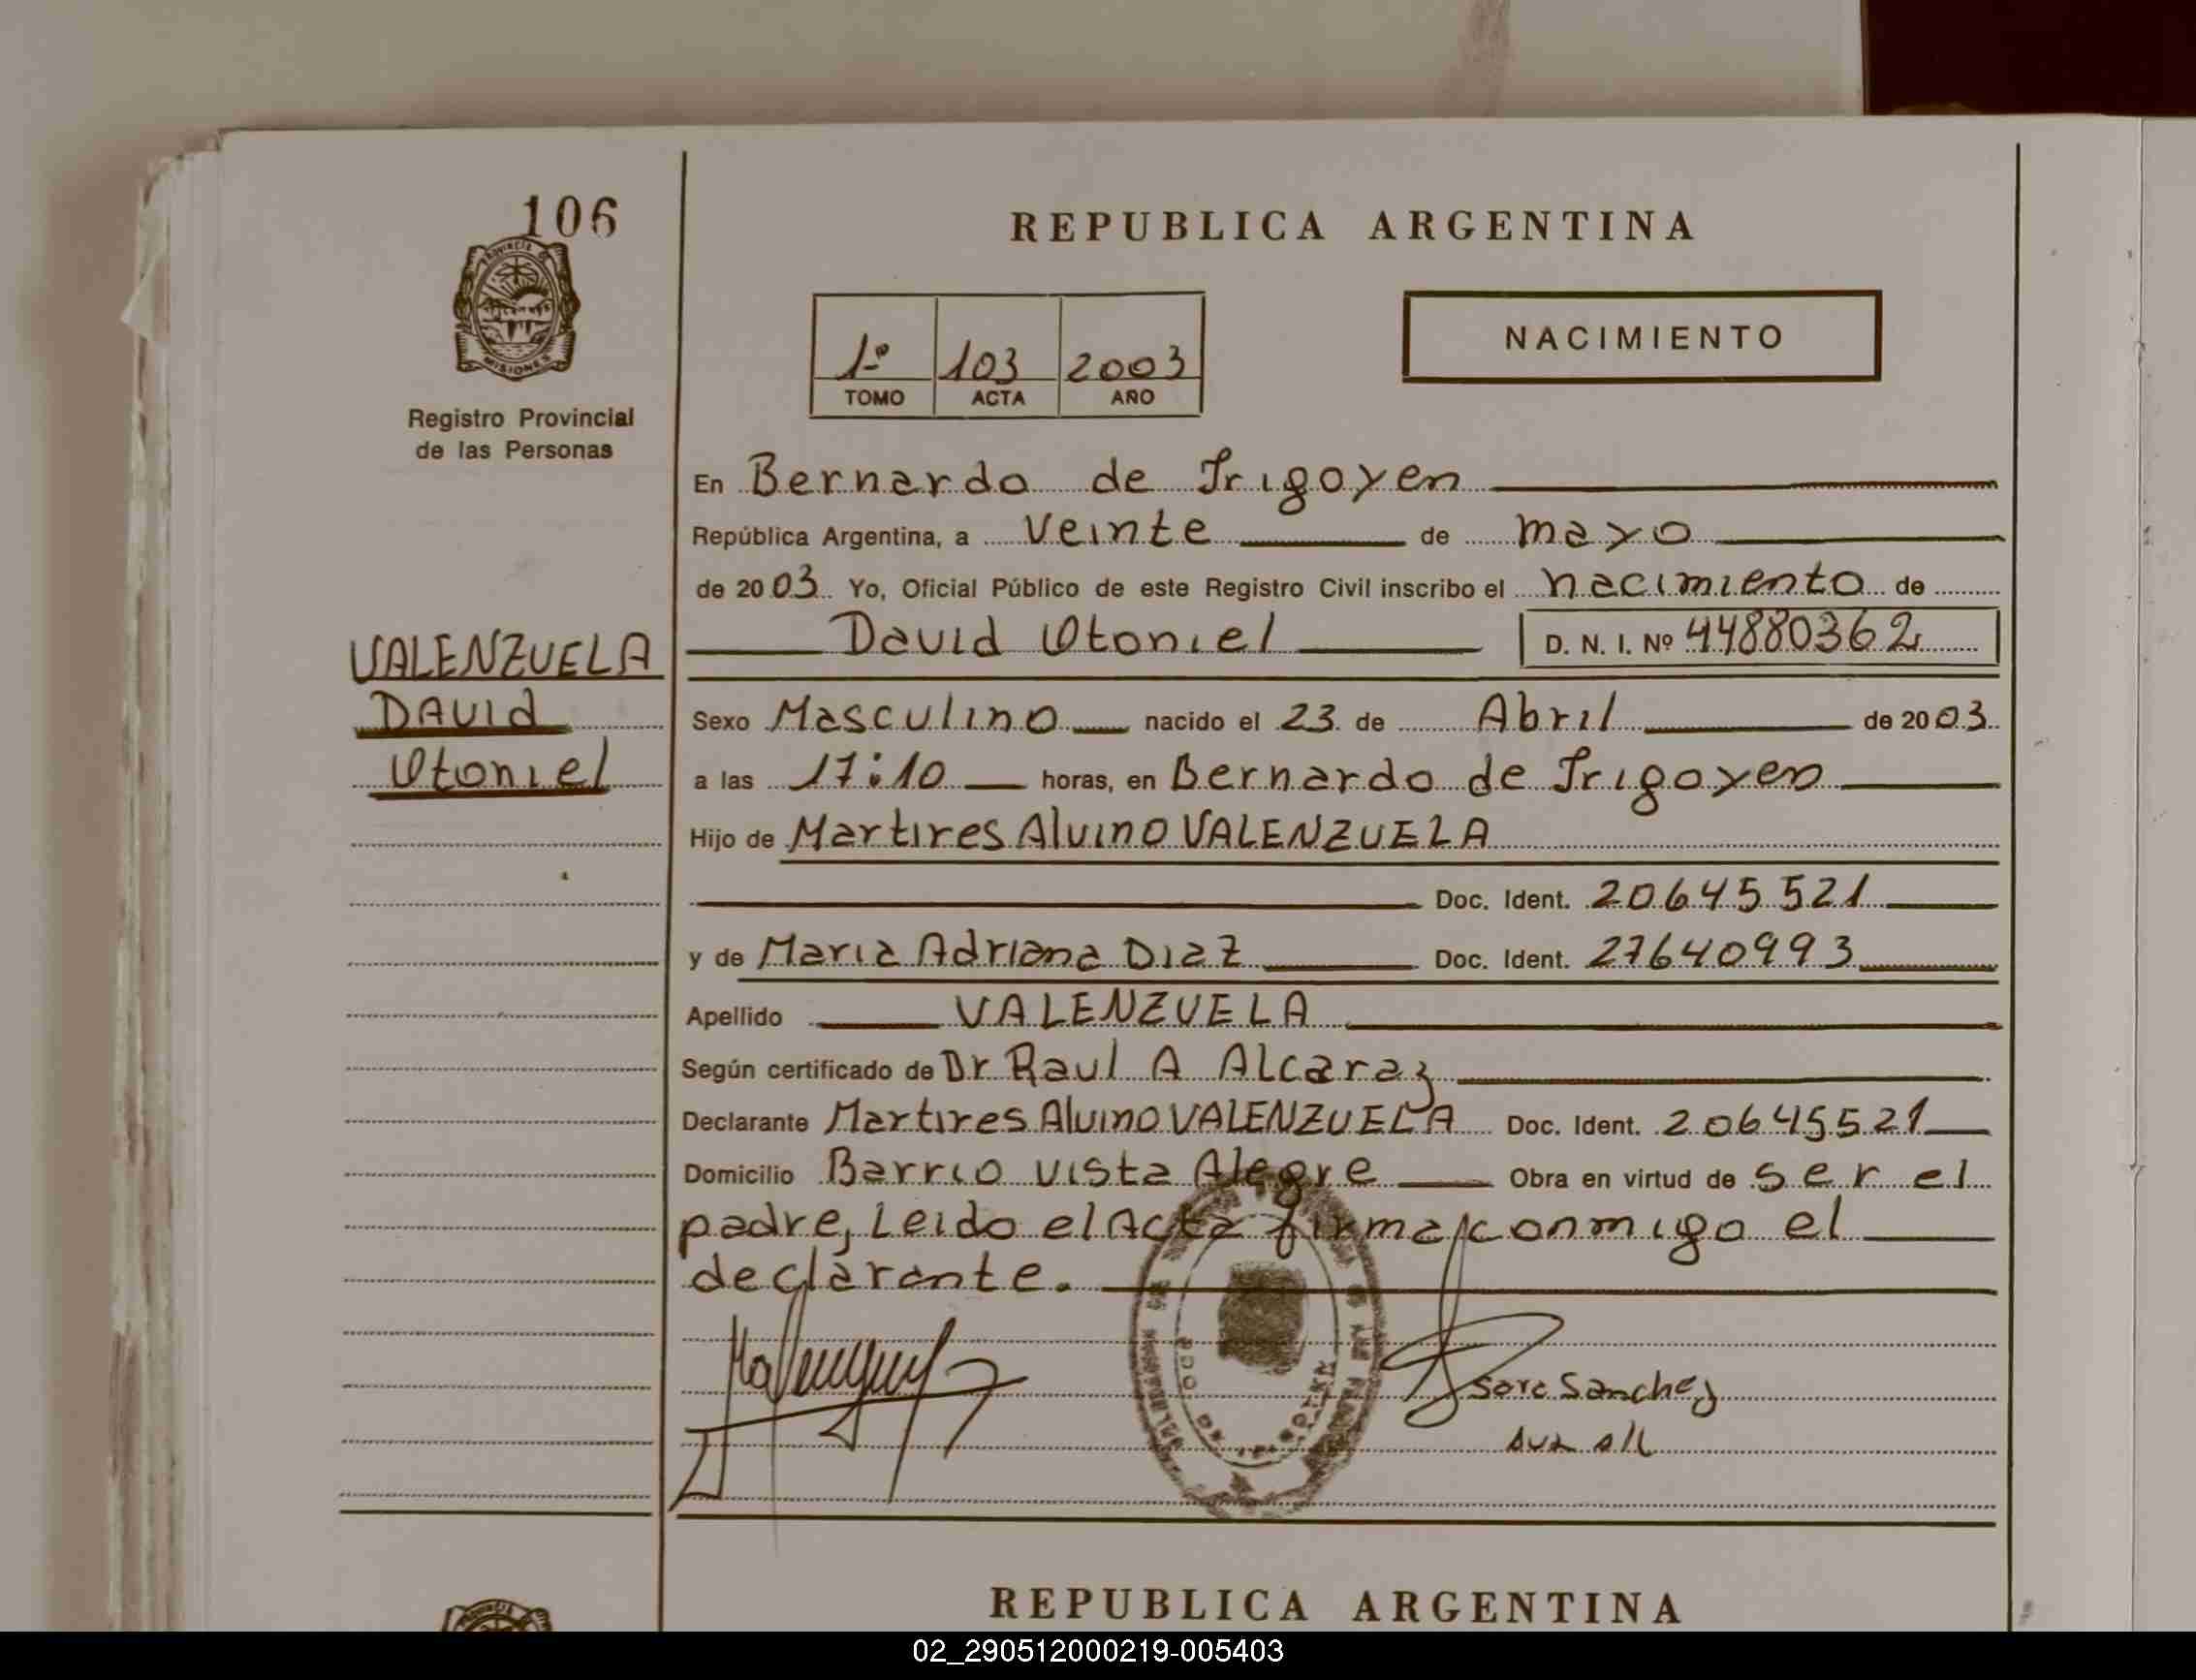 106
PROVINCIA DE
MISIONES
Registro Provincial
de las Personas
VALENZUELA
DAVId
Otoniel
REPUBLICA ARGENTINA
1º 103 2003
TOMO ACTA AÑO
NACIMIENTO
En Bernardo de Irigoyen
República Argentina, a veinte de mayo
de 2003 Yo, Oficial Público de este Registro Civil inscribo el nacimiento de
David Otoniel D. N. I. Nº 44880362
Sexo Masculino nacido el 23 de Abril de 2003
a las 17:10 horas, en Bernardo de Irigoyen
Hijo de Martires Alvino VALENZUELA
Doc. Ident. 20645521
y de Maria Adriana Diaz Doc. Ident. 27640993
Apellido VALENZUELA
Según certificado de Dr Raul A Alcaraz
Declarante Martires Alvino VALENZUELA Doc. Ident. 20645521
Domicilio Barrio vista Alegre Obra en virtud de ser el
padre, Leido el Acta firma conmigo el
declarante.
Sara Sanchez
REPUBLICA ARGENTINA
02_290512000219-005403